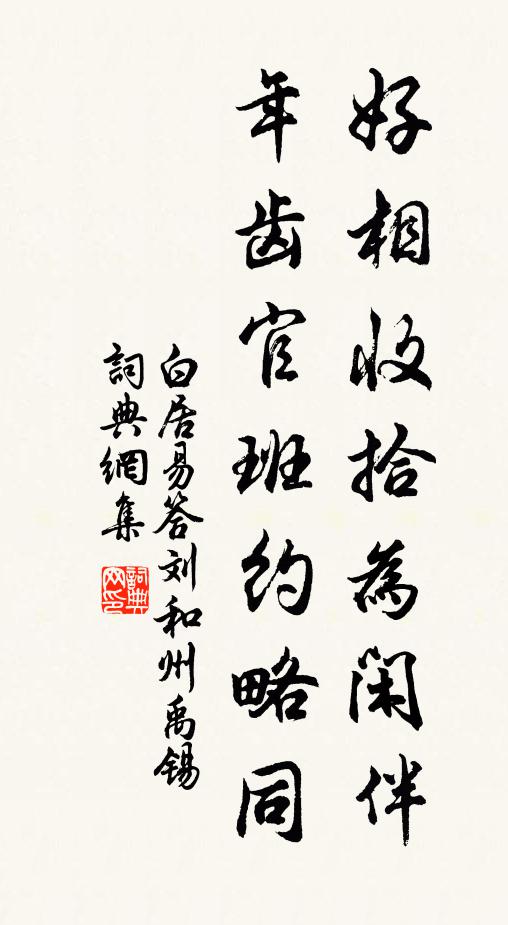 好相收拾為閑伴
年齿官班約略同
白居易答刘和州禹锡
詞典網集
詞典網印